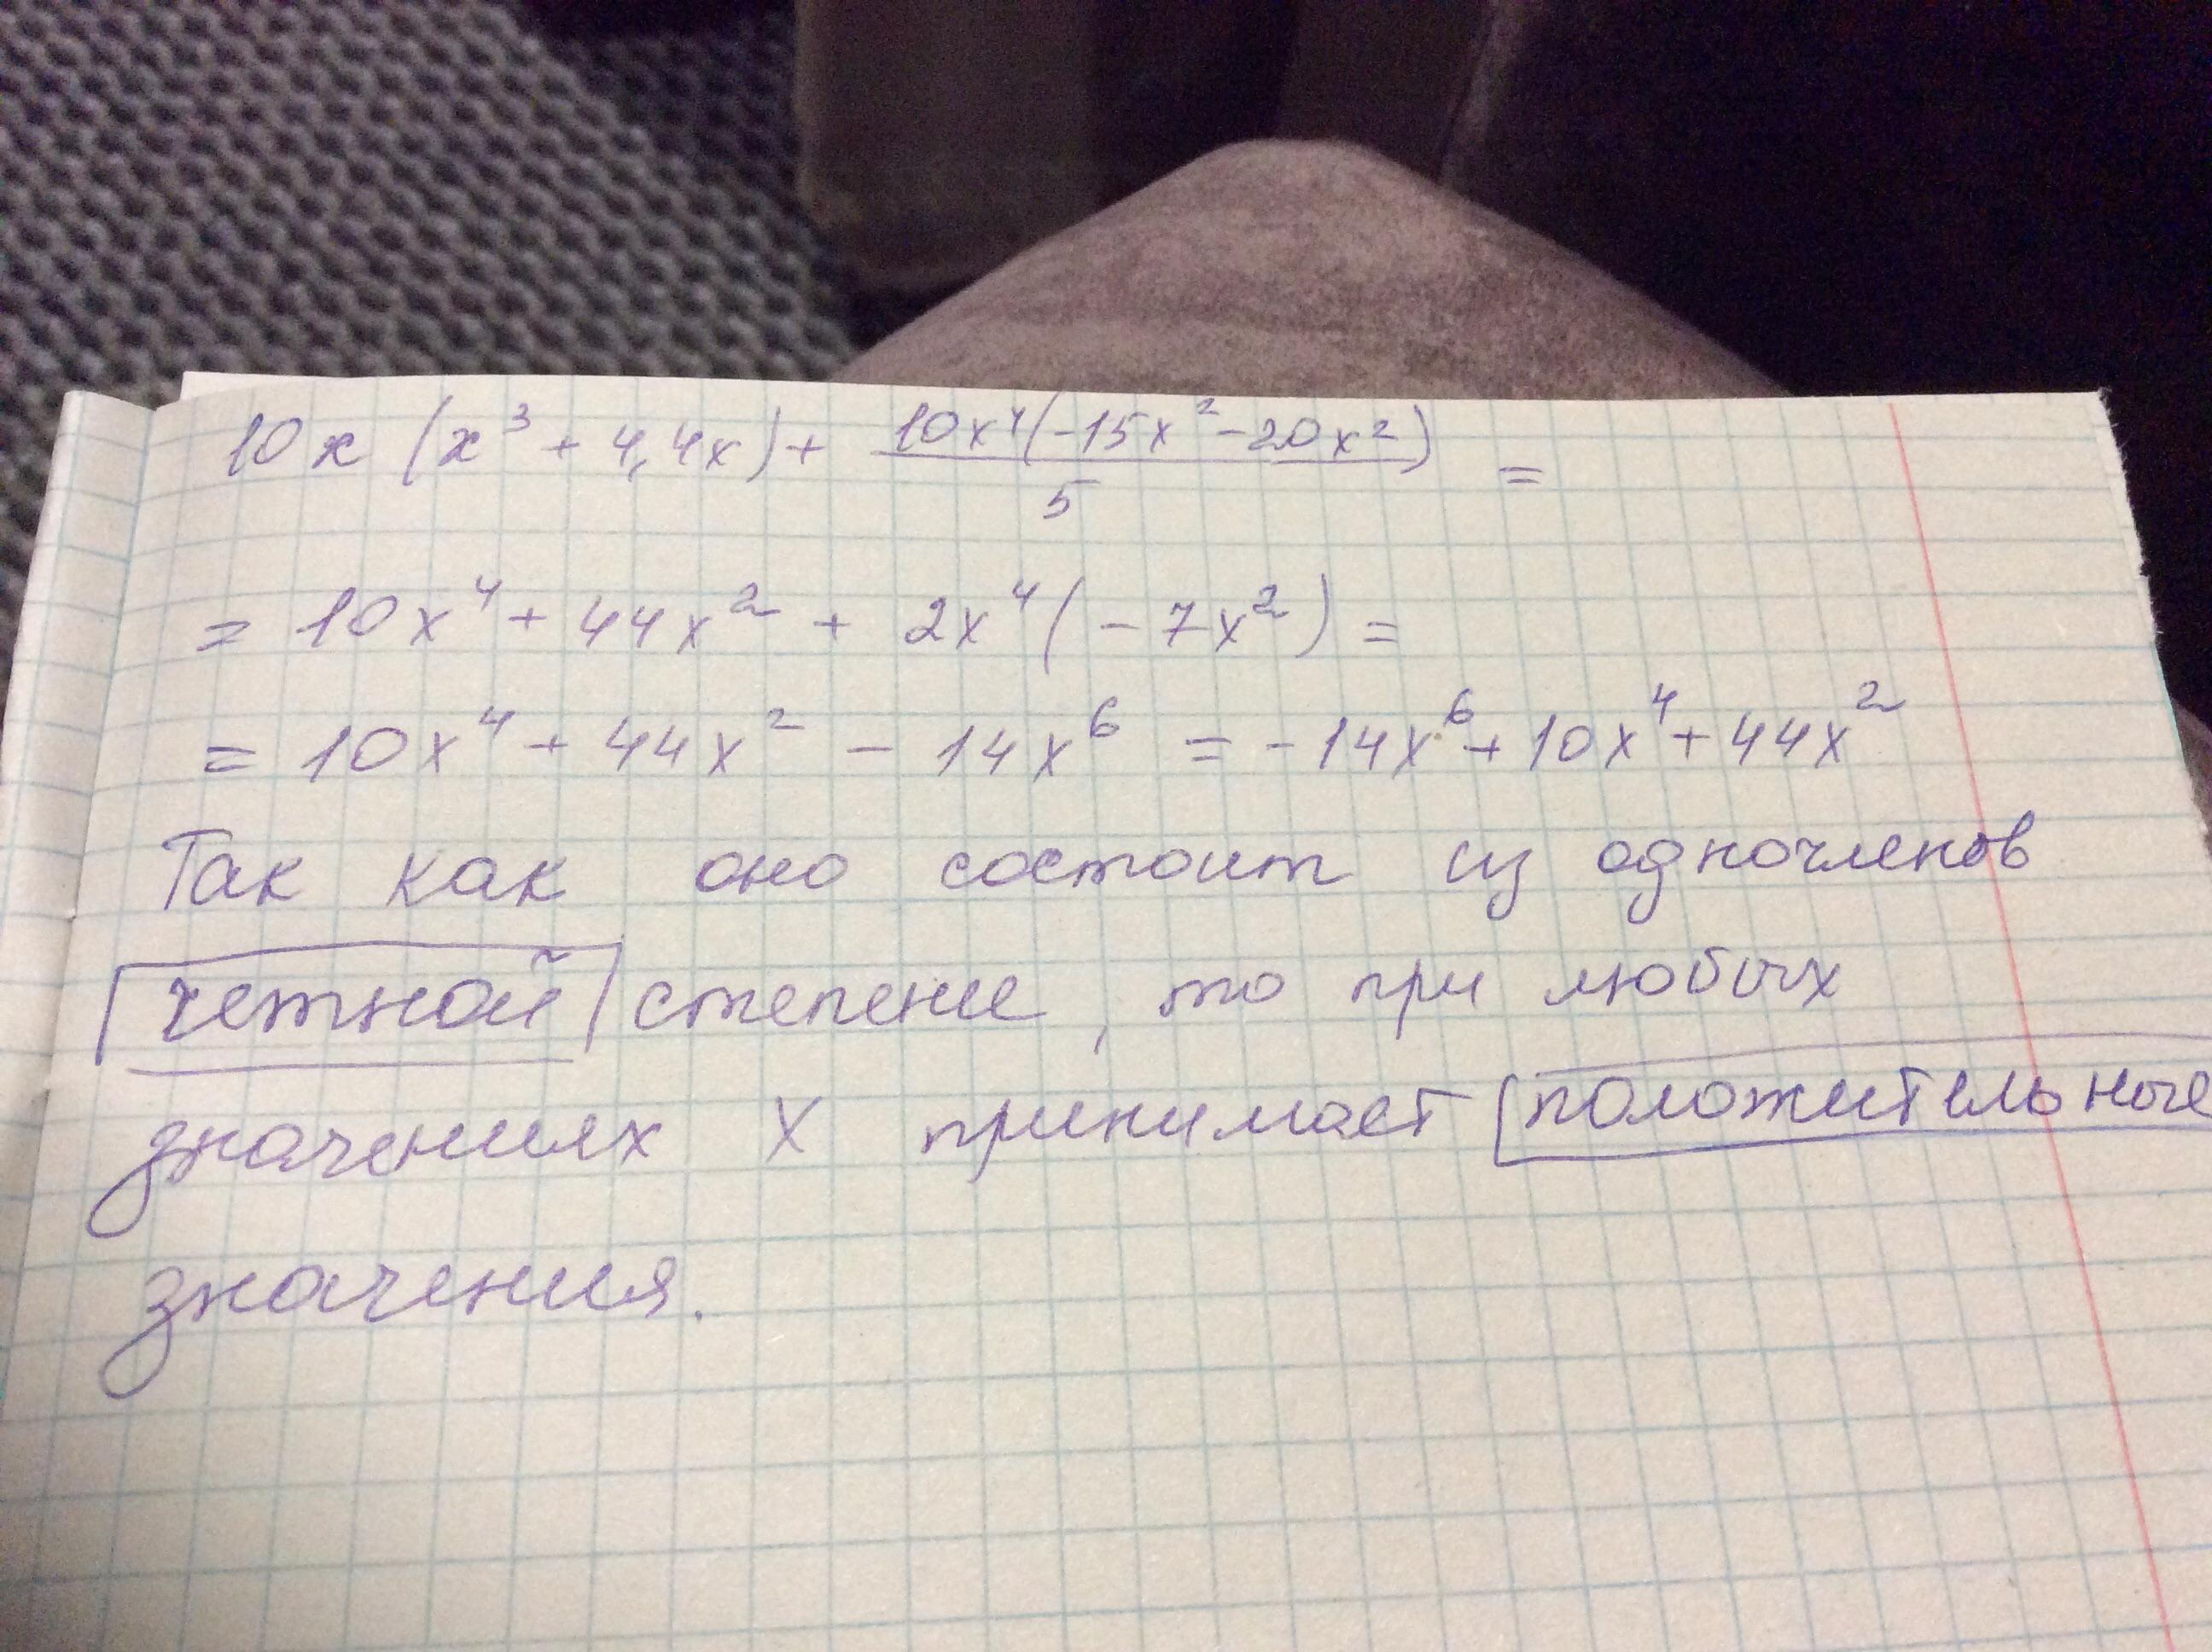 10x (x³ + 4,4x) + 10x⁴(-15x² - 20x²) / 5 =
= 10x⁴ + 44x² + 2x⁴(-7x²) =
= 10x⁴ + 44x² - 14x⁶ = -14x⁶ + 10x⁴ + 44x²
Так как оно состоит из одночленов
четной степени, то при любых
значениях x принимает положительные
значения.